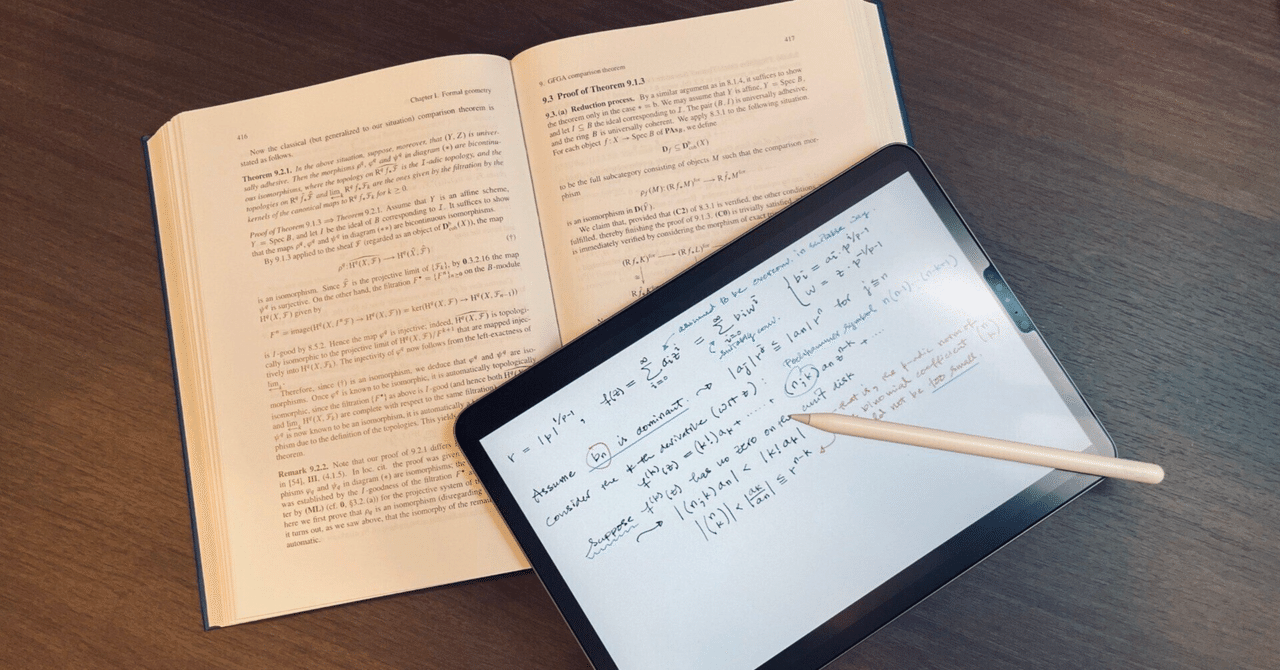 416
Chapter I. Formal geometry
Now the classical (but generalized to our situation) comparison theorem is
stated as follows.
Theorem 9.2.1. In the above situation, suppose, moreover, that (Y, Z) is univer-
sally adhesive. Then the morphisms ρ^q, φ^q and ψ^q in diagram (∗) are bicontinu-
ous isomorphisms, where the topology on
is the I-adic topology, and the
topologies on
are the ones given by the filtration by the
kernels of the canonical maps to
for k ≥ 0.
Proof of Theorem 9.1.3 ⟹ Theorem 9.2.1. Assume that Y is an affine scheme,
Y = Spec B, and let I be the ideal of B corresponding to I. It suffices to show
that the maps ρ^q, φ^q and ψ^q in diagram (∗∗) are bicontinuous isomorphisms.
By 9.1.3 applied to the sheaf F (regarded as an object of
the map
(†)
is an isomorphism. Since
is the projective limit of {F_k}, by 0.3.2.16 the map
ψ^q is surjective. On the other hand, the filtration
on the B-module
H^q(X, F) given by
is I-good by 8.5.2. Hence the map φ^q is injective, indeed,
is topologi-
cally isomorphic to the projective limit of
that are mapped injec-
tively into
The injectivity of ψ^q now follows from the left-exactness of
lim.
Therefore, since (†) is an isomorphism, we deduce that φ^q and ψ^q are iso-
morphisms. Once φ^q is known to be isomorphic, it is automatically topologically
isomorphic, since the filtration
as above is I-good (and hence both
and
are complete with respect to the same filtration)
ψ^q is now known to be an isomorphism, it is automatically a
phism due to the definition of the topologies. This yields
theorem.
Remark 9.2.2. Note that our proof of 9.2.1 differs
in [54], III, (4.1.5). In loc. cit. the proof was given
phisms
in diagram (∗) are isomorphisms; the
was established by the I-goodness of the filtration
ter by (ML) (cf. 0, §3.2.(a)) for the projective system of
here we first prove that
is an isomorphism (disregarding
it turns out, as we saw above, that the isomorphy of the remai
automatic.
417
9. GFGA comparison theorem
9.3 Proof of Theorem 9.1.3
9.3.(a) Reduction process. By a similar argument as in 8.1.4, it suffices to show
the theorem only in the case ∗ = b. We may assume that Y is affine, Y = Spec B,
and let I ⊆ B the ideal corresponding to I. The pair (B, I) is universally adhesive,
and the ring B is universally coherent. We apply 8.3.1 to the following situation.
For each object f: X → Spec B of PAs_B, we define
to be the full subcategory consisting of objects M such that the comparison mor-
phism
is an isomorphism in
We claim that, provided that (C2) of 8.3.1 is verified, the other conditions
fulfilled, thereby finishing the proof of 9.1.3. (C0) is trivially satisfied
is immediately verified by considering the morphism of exact
assumed to be overconv. in suitable way
r = |p|^{1/p-1}, f(z) = ∑_{i=0}^∞ a_i z^i = ∑_{i=0}^∞ b_i w^i { b_i = a_i · p^{i/p-1}
w = z · p^{-1/p-1}
suitably conv.
Assume b_n is dominant. ⇝ |a_j| r^j ≤ |a_n| r^n for j ≥ n
Consider the k-th derivative (w.r.t z):
Pochhammer symbol
n(n-1)···(n-k+1)
f^{(k)}(z) = (k!) a_k + ····· + (n;k) a_n z^{n-k} + ····
Suppose f^{(k)}(z) has no zero on the unit disk
⟶ |(n;k) a_n| < |k! a_k|
|(n k)| < |a_k/a_n| ≤ r^{n-k}
that is, the p-adic norm of
binomial coefficient (n k)
not be too small